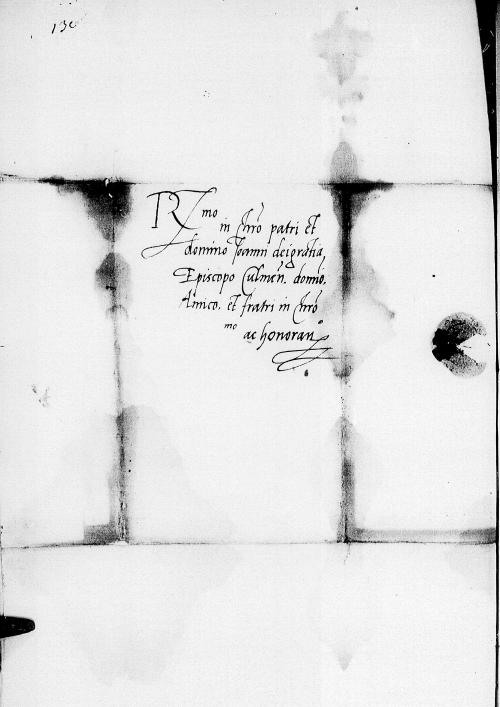 130
Rmo
in Chro patri et
domino Joanni dei gratia
Episcopo Culmen. domio.
Amico. et fratri in Chro
mo ac honoran